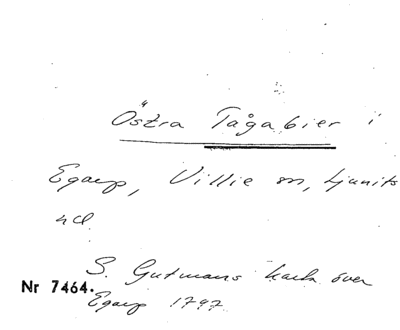 Östra Tågabier i
Egarp, Villie sn, Ljunits
hd.
S. Gutmans karta över
Nr 7464.
Egarp 1797